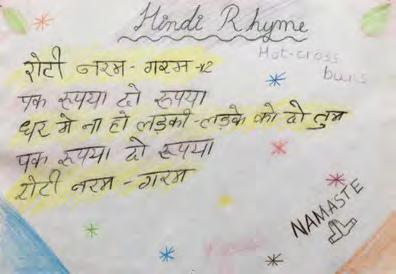 Hindi Rhyme
Hot-cross
buns
रोटी नरम - गरम -x2
एक रूपया दो रूपया
घर मे ना हो लड़की -लड़के को दो तुम
एक रूपया दो रूपया
रोटी नरम - गरम
NAMASTE